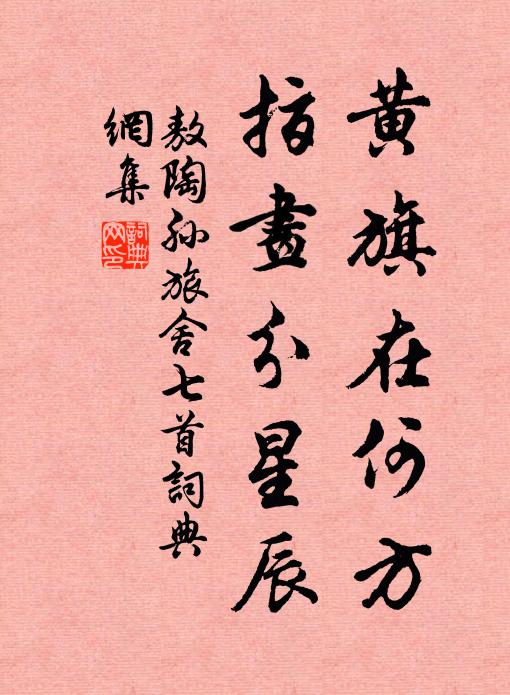 黄旗在何方
指畫分星辰
敖陶孙旅舍七首詞典
網集
詞典
网印